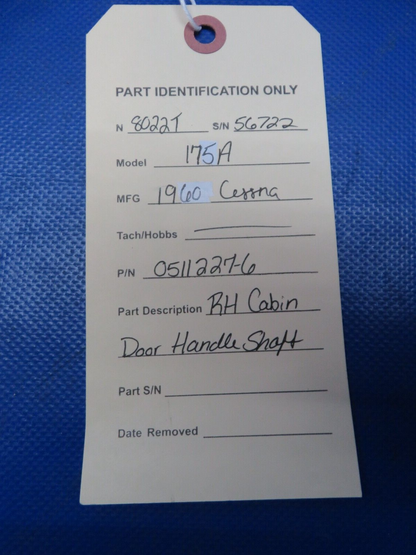 PART IDENTIFICATION ONLY
N 8022T S/N 56722
Model 175A
MFG 1960 Cessna
Tach/Hobbs
P/N 0511227-6
Part Description RH Cabin
Door Handle Shaft
Part S/N
Date Removed